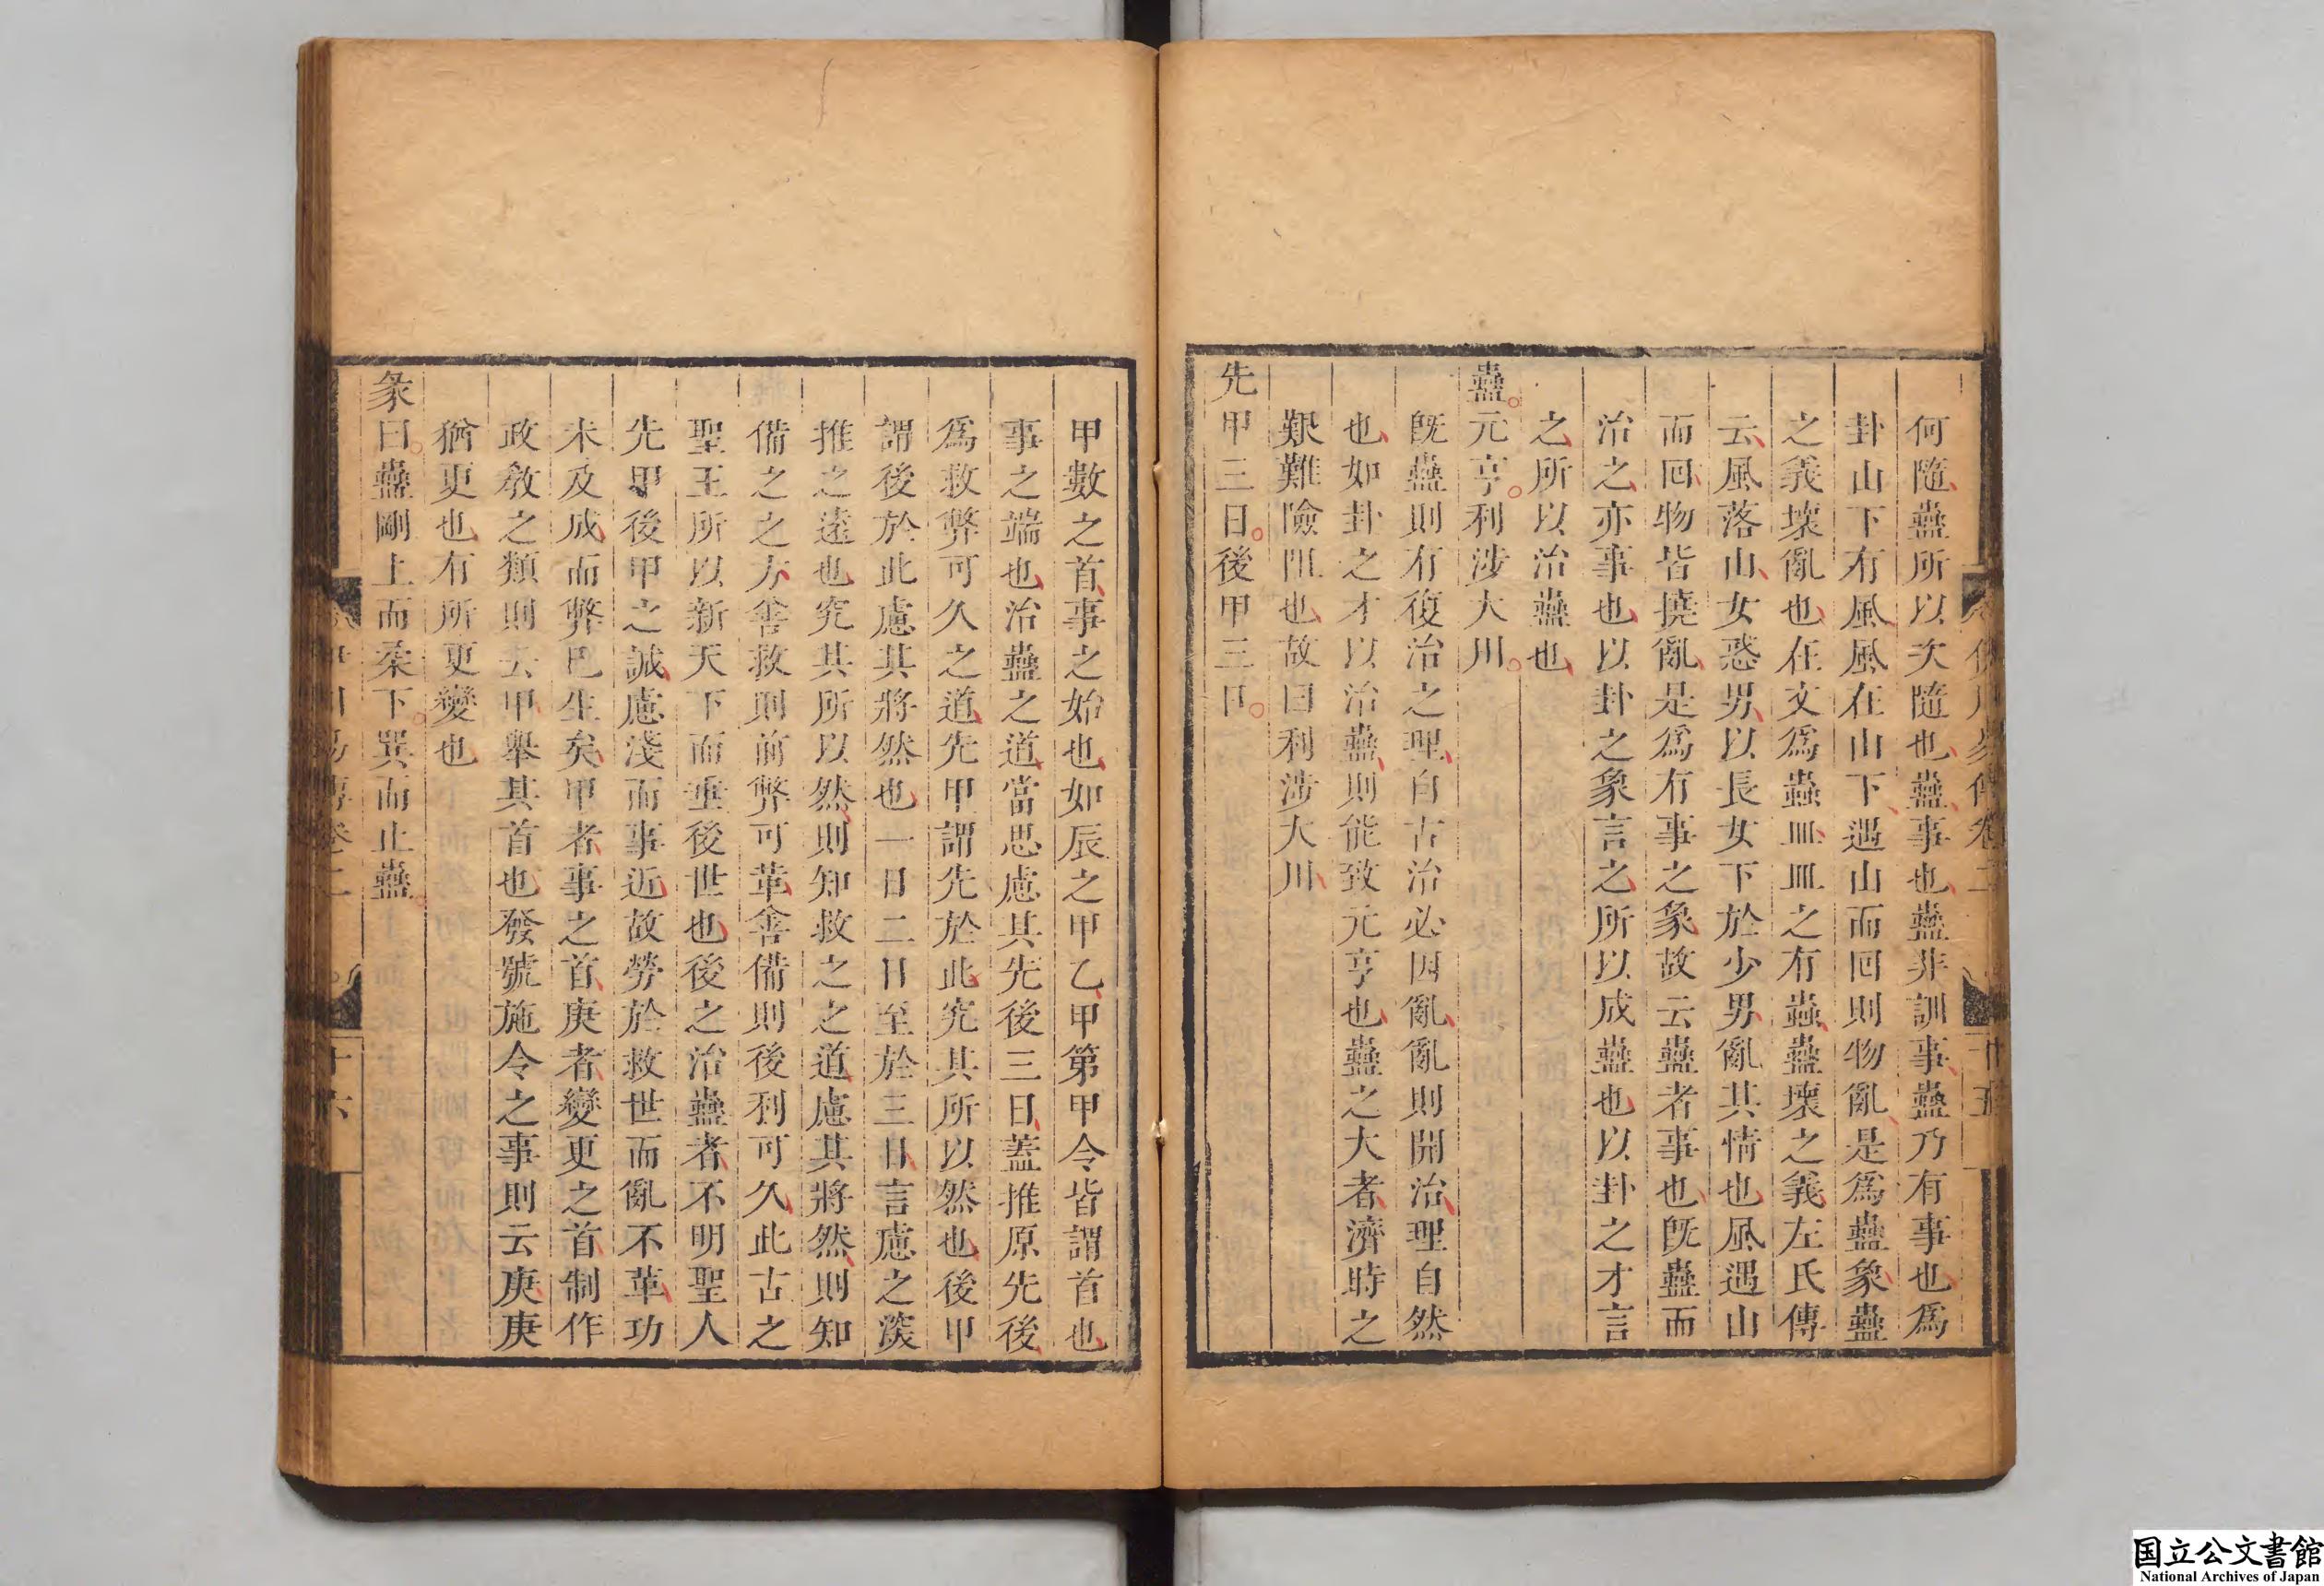 何隨蠱所以次隨也蠱事也蠱非訓事蠱乃有事也爲
卦山下有風風在山下遇山而回則物亂是爲蠱象蠱
之義壞亂也在文爲蟲皿皿之有蟲蠱壞之義左氏傳
云風落山女惑男以長女下於少男亂其情也風遇山
而回物皆撓亂是爲有事之象故云蠱者事也旣蠱而
治之亦事也以卦之象言之所以成蠱也以卦之才言
之所以治蠱也
蠱元亨利涉大川
旣蠱則有復治之理自古治必因亂亂則開治理自然
也如卦之才以治蠱則能致元亨也蠱之大者濟時之
艱難險阻也故曰利涉大川
先甲三日後甲三日
甲數之首事之始也如辰之甲乙甲第甲令皆謂首也
事之端也治蠱之道當思慮其先後三日蓋推原先後
爲救弊可久之道先甲謂先於此究其所以然也後甲
謂後於此慮其將然也一日二日至於三日言慮之深
推之遠也究其所以然則知救之之道慮其將然則知
備之之方善救則前弊可革善備則後利可久此古之
聖王所以新天下而垂後世也後之治蠱者不明聖人
先甲後甲之誠慮淺而事近故勞於救世而亂不革功
未及成而弊已生矣甲者事之首庚者變更之首制作
政敎之類則云甲舉其首也發號施令之事則云庚庚
猶更也有所更變也
彖曰蠱剛上而柔下巽而止蠱
伊川易傳卷二
十六
国立公文書館
National Archives of Japan